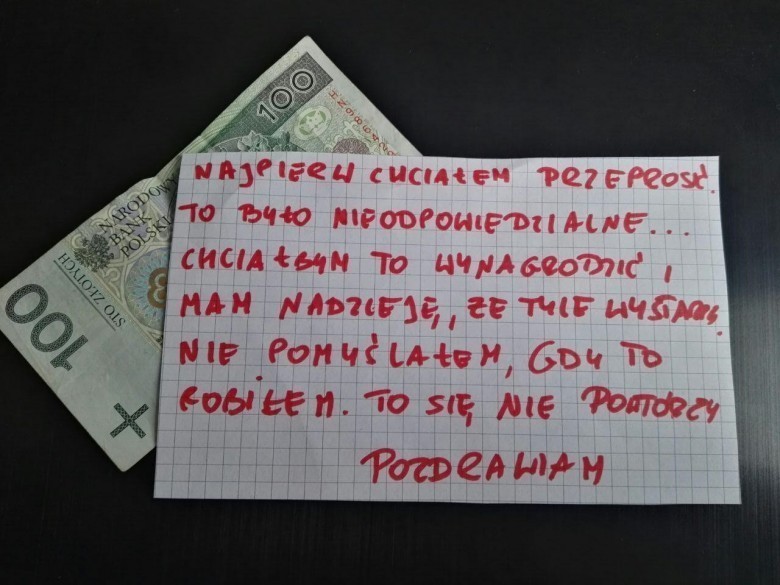 100
NARODOWY
BANK
POLSKI
STO ZŁOTYCH
100
NAJPIERW CHCIAŁEM PRZEPROSĆ.
TO BYŁO NIEODPOWIEDZIALNE...
CHCIAŁBYM TO WYNAGRODZIĆ I
MAM NADZIEJĘ, ŻE TYLE
NIE POMYŚLAŁEM, GDY TO
ROBIŁEM. TO SIĘ NIE POWTÓRZY
POZDRAWIAM